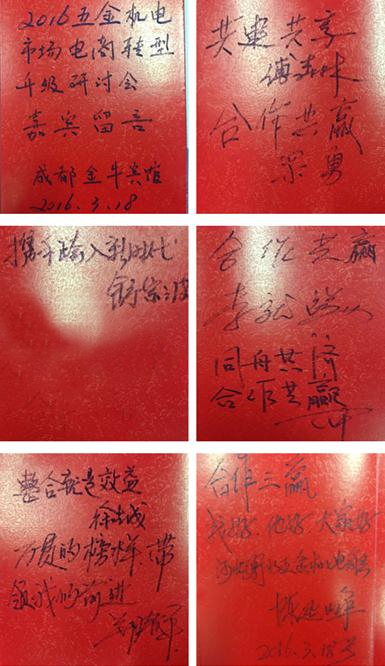 2016五金机电
市场电商转型
升级研讨会
嘉宾留言
成都金牛宾馆
2016.3.18
共聚共享
傅
合作共赢
梁勇
携手踏入新时代
合作共赢
李
同舟共济
合作共赢
整合就是效益
徐
的榜样、带
领我们前进
合作三赢
我好、他好、大家好
五金机电
陈
2016.3.18号